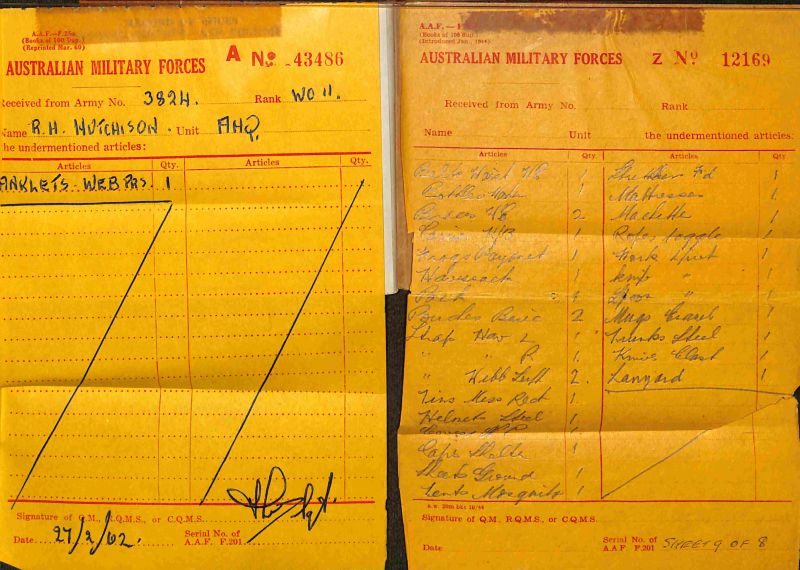 A.A.F.—F.25a
(Books of 100 Dup.)
(Reprinted Mar. 60)
AUSTRALIAN MILITARY FORCES A No. 43486
Received from Army No. 3824. Rank WO II.
Name R.H. HUTCHISON. Unit AHQ.
the undermentioned articles:
Articles Qty. Articles Qty.
ANKLETS WEB PRS. 1
Signature of Q.M., R.Q.M.S., or C.Q.M.S.
Date 27/2/62. Serial No. of
A.A.F. F.201
A.A.F.—F
(Books of 100 dup
(Introduced Jan., 1944)
AUSTRALIAN MILITARY FORCES Z No. 12169
Received from Army No. Rank
Name Unit the undermentioned articles:
Articles Qty. Articles Qty.
Belts Waist 1 1
Bottles Water 1 Mattresses 1
Braces 2 Machette 1
1 Ropes toggle 1
Frogs Bayonet 1 Fork 1
Haversack 1 Knife " 1
Pack Spoon " 1
Pouches Basic 2 Mugs Enamel 1
Strap Hav L Trunks Steel 1
" " R. 1. Knives Clasp 1
" Webb 2. Lanyard 1
Tins Mess Rect 1
Helmets Steel 1
Cape 1
Sheets Ground 1
Mosquito 1
A.W. 20m bks 10/44
Signature of Q.M., R.Q.M.S., or C.Q.M.S.
Date Serial No. of
A.A.F. F.201 SHEET 9 OF 8